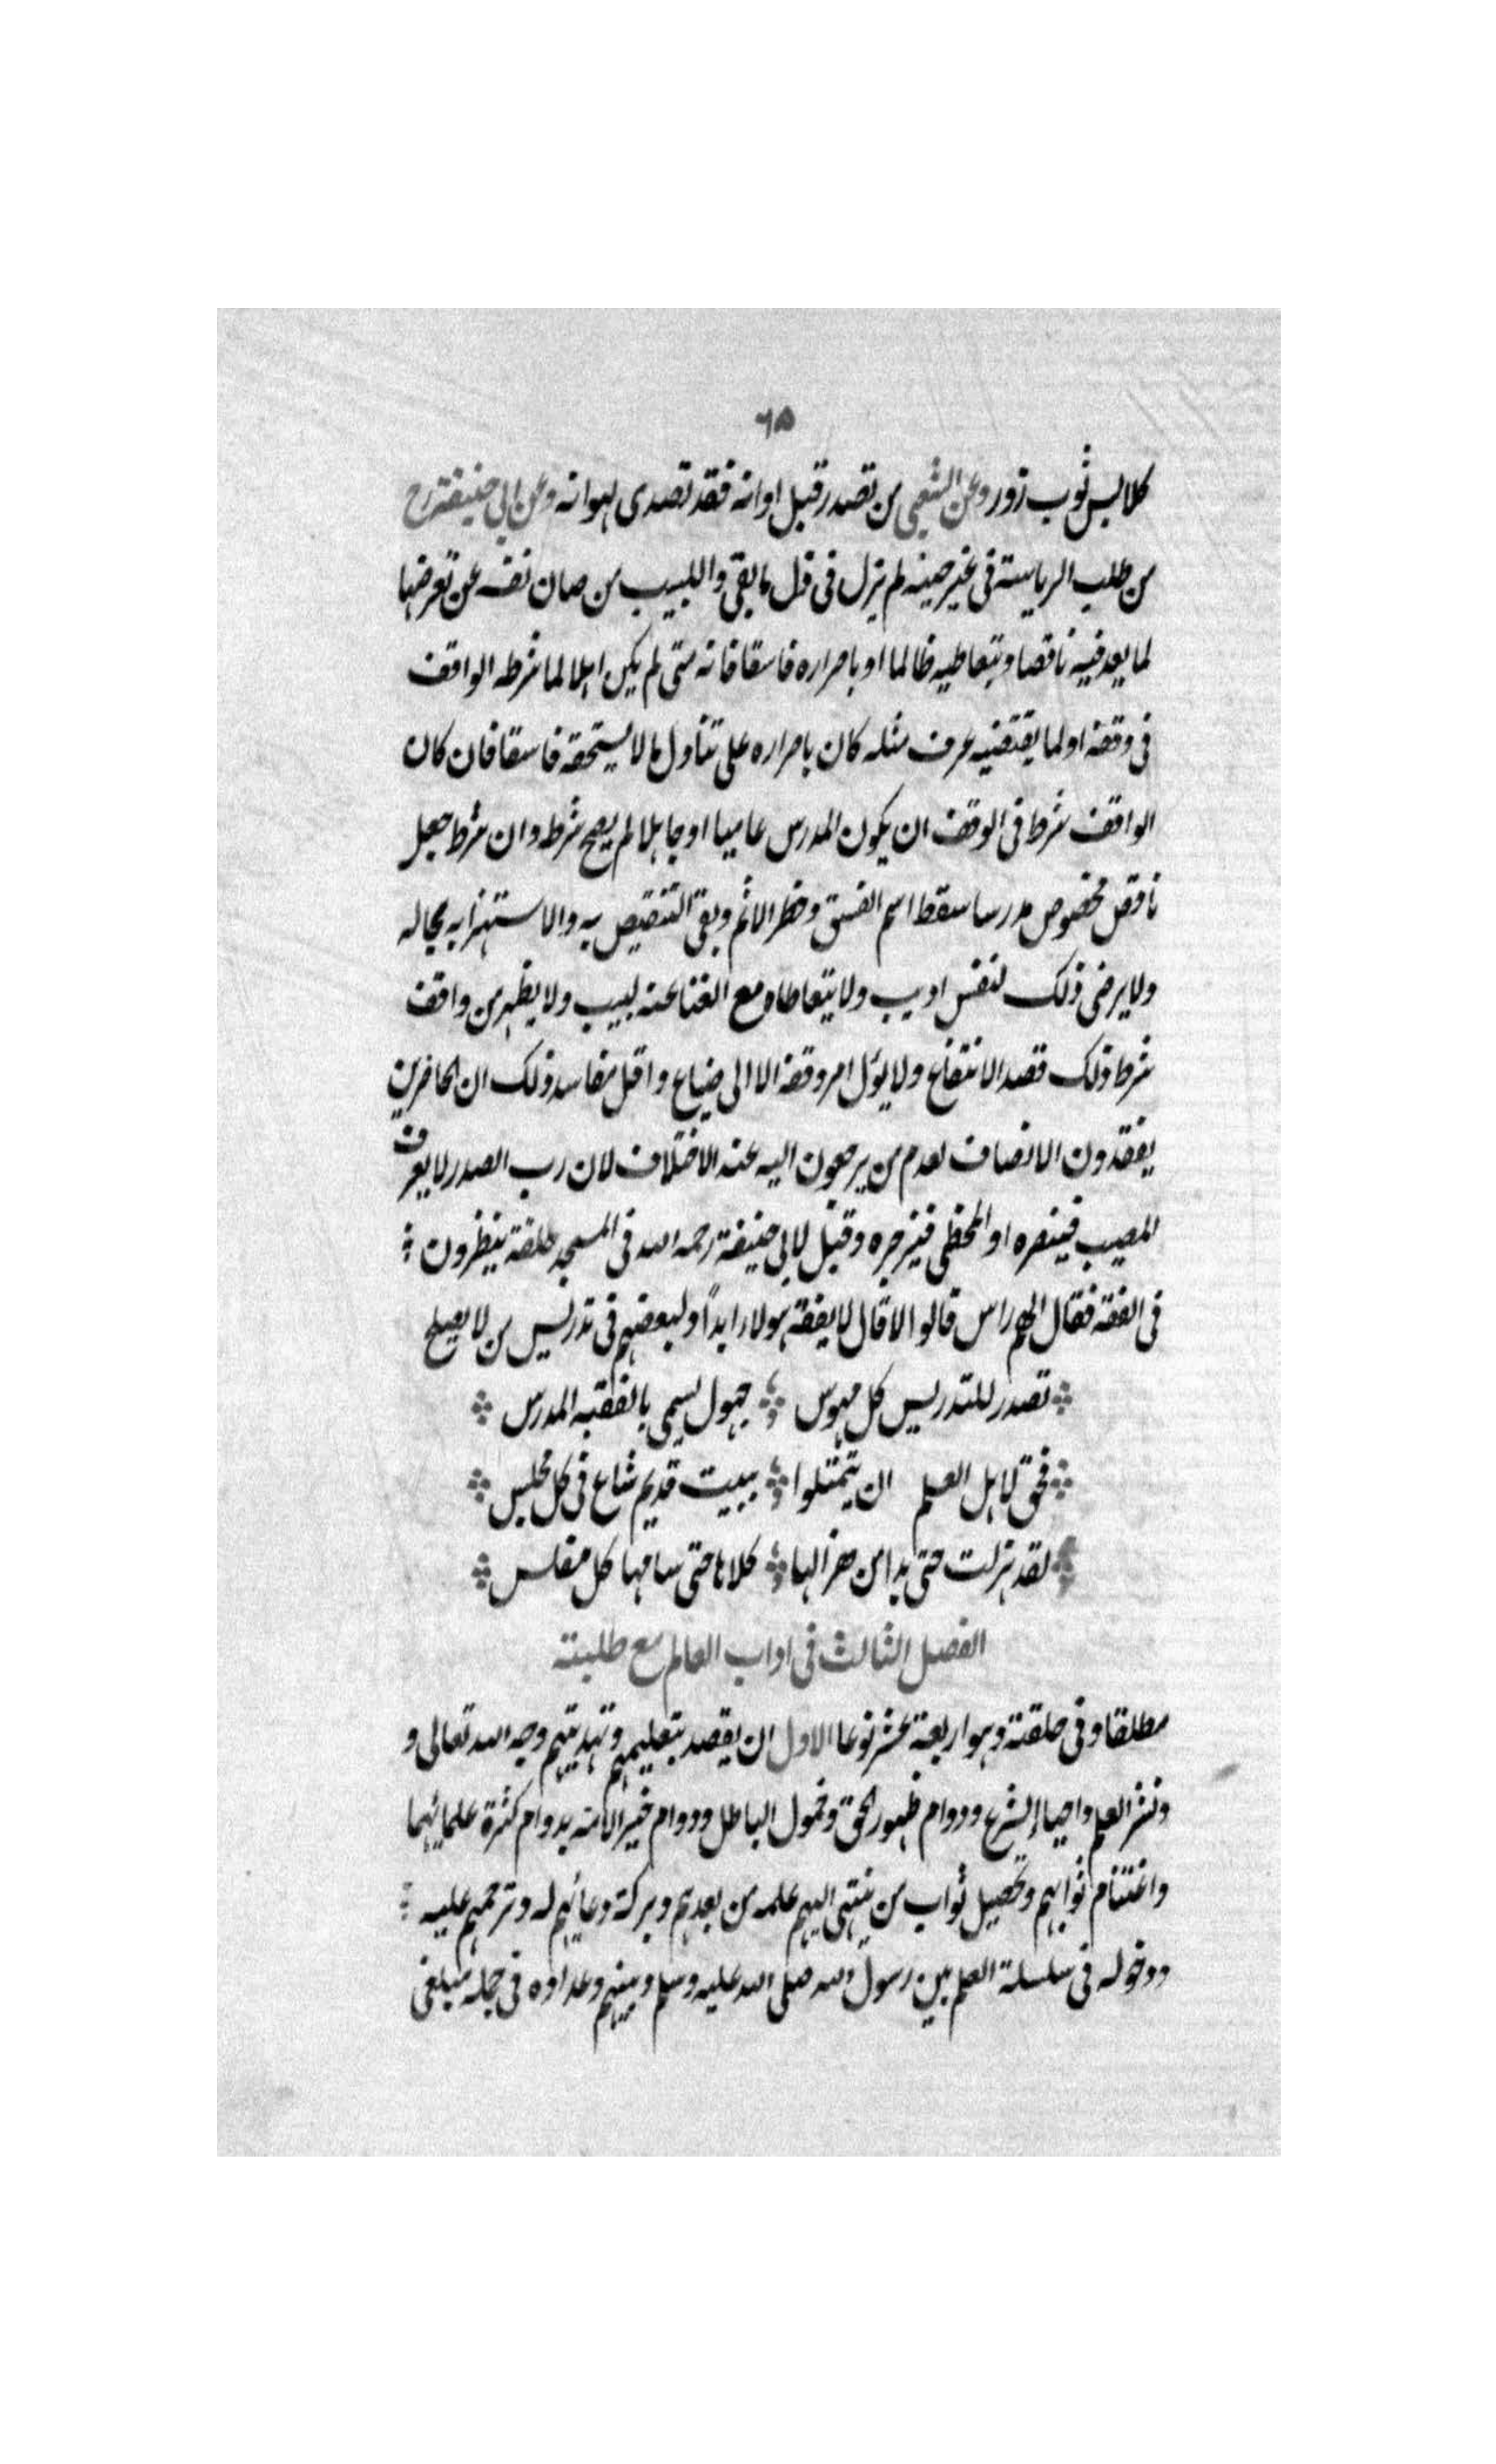 ٦٥
كلابس ثوب زور وعن الشعبى من تصدر قبل اوانه فقد تصدى لهوانه وعن ابي حنيفة رح
من طلب الرياسة فى غير حينه لم يزل فى ذل ما بقى واللبيب من صان نفسه عن تعرضها
لما يعد فيه ناقصا وبتعاطيه ظالما او باصراره فاسقا فانه متى لم يكن اهلا لما شرطه الواقف
فى وقفه او لما يقتضيه عرف مثله كان باصراره على تناول ما لا يستحقه فاسقا فان كان
الواقف شرط فى الوقف ان يكون المدرس عاميا او جاهلا لم يصح شرطه وان شرط جعل
ناقص مخصوص مدرسا سقط اسم الفسق وخطر الاثم وبقى التنقيص به والاستهزا به بحاله
ولا يرضى ذلك لنفسه اديب ولا يتعاطاه مع الغنا عنه لبيب ولا يظهر من واقف
شرط ذلك قصد الانتفاع ولا يؤل امر وقفه الا الى ضياع واقل مفاسد ذلك ان الحاضرين
يفقدون الانصاف لعدم من يرجعون اليه عند الاختلاف لان رب الصدر لا يعرف
المصيب فينصره او المخطى فيزجره وقيل لابي حنيفة رحمه الله فى المسجد حلقة ينظرون
فى الفقه فقال الهم راس قالوا لا قال لا يفقه هولاء ابداً ولبعضهم فى تدريس من لا يصلح
تصدر للتدريس كل مهوس جهول يسمى بالفقيه المدرس
فحق لاهل العلم ان يتمثلوا ببيت قديم شاع فى كل مجلس
لقد هزلت حتى بدا من هزالها كلاها حتى سامها كل مفلس
الفصل الثالث فى اداب العالم مع طلبته
مطلقا وفى حلقته وهو اربعة عشر نوعا الاول ان يقصد بتعليمهم وتهذيبهم وجه الله تعالى و
ونشر العلم واحياء الشرع ودوام ظهور الحق وخمول الباطل ودوام خير الامة بدوام كثرة علمائهما
واغتنام ثوابهم وتحصيل ثواب من ينتهى اليهم علمه من بعدهم وبركة دعائهم له وترحمهم عليه
ودخوله فى سلسلة العلم بين رسول الله صلى الله عليه وسلم وبينهم وعداده فى جملة مبلغى